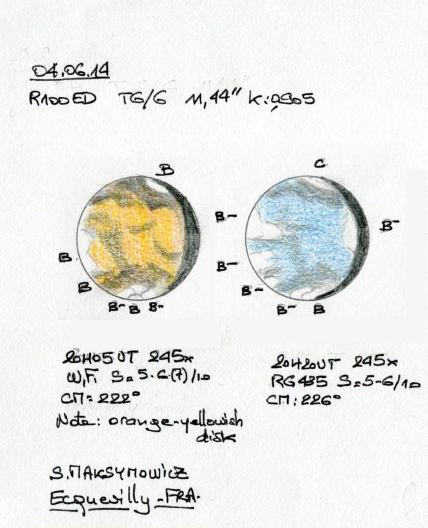 04.06.14
R100ED T6/6 11,44" K:0905
B
B
B
B- B B-
20H05UT 245x
W,Fi S=5-6(7)/10
CM=222°
Note: orange-yellowish
disk
C
B-
B-
B-
B-
B-
B
20H20UT 245x
RG495 S=5-6/10
CM:226°
S.MAKSYMOWICZ
Ecquevilly-FRA-